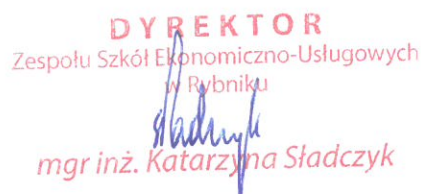 DYREKTOR
Zespołu Szkół Ekonomiczno-Usługowych
w Rybniku
Sładczyk
mgr inż. Katarzyna Sładczyk